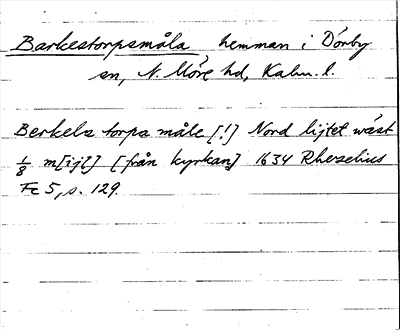 Barkestorpsmåla, hemman i Dörby
sn, N. Möre hd, Kalm. l.
Berkels torps måle [!] Nord lijtet wäst
1/8 m[ijl] [från kyrkan] 1634 Rhezelius
Fc 5, s. 129.